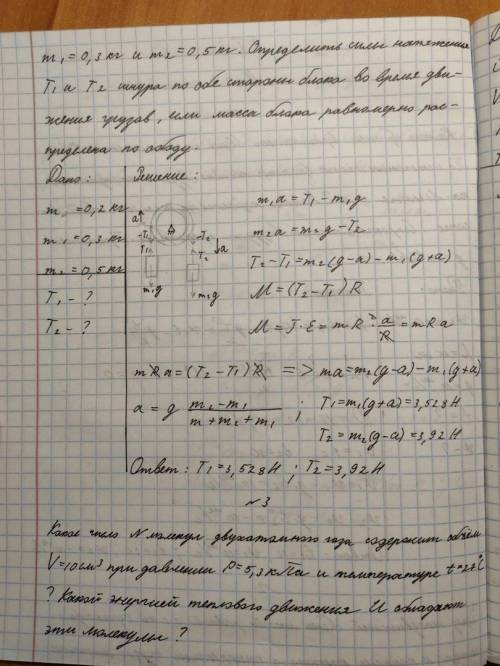 m₁ = 0,3 кг и m₂ = 0,5 кг. Определить силы натяжения
T₁ и T₂ шнура по обе стороны блока во время дви-
жения грузов, если масса блока равномерно рас-
пределена по ободу.
Дано: Решение:
m = 0,2 кг
m₁ = 0,3 кг
m₂ = 0,5 кг
T₁ - ?
T₂ - ?
a T₁ T₂ T₂ a
m₁g m₂g
m₁a = T₁ - m₁g
m₂a = m₂g - T₂
T₂ - T₁ = m₂(g-a) - m₁(g+a)
M = (T₂ - T₁) R
M = J·ε = mR² · a/R = mRa
mRa = (T₂ - T₁) R => ma = m₂(g-a) - m₁(g+a)
a = g (m₂ - m₁)/(m + m₂ + m₁) ; T₁ = m₁(g+a) = 3,528 Н
T₂ = m₂(g-a) = 3,92 Н
Ответ: T₁ = 3,528 Н ; T₂ = 3,92 Н
№3
Какое число N молекул двухатомного газа содержит объём
V = 10 см³ при давлении P = 5,3 кПа и температуре t = 27°C
? Какой энергией теплового движения U обладают
эти молекулы ?